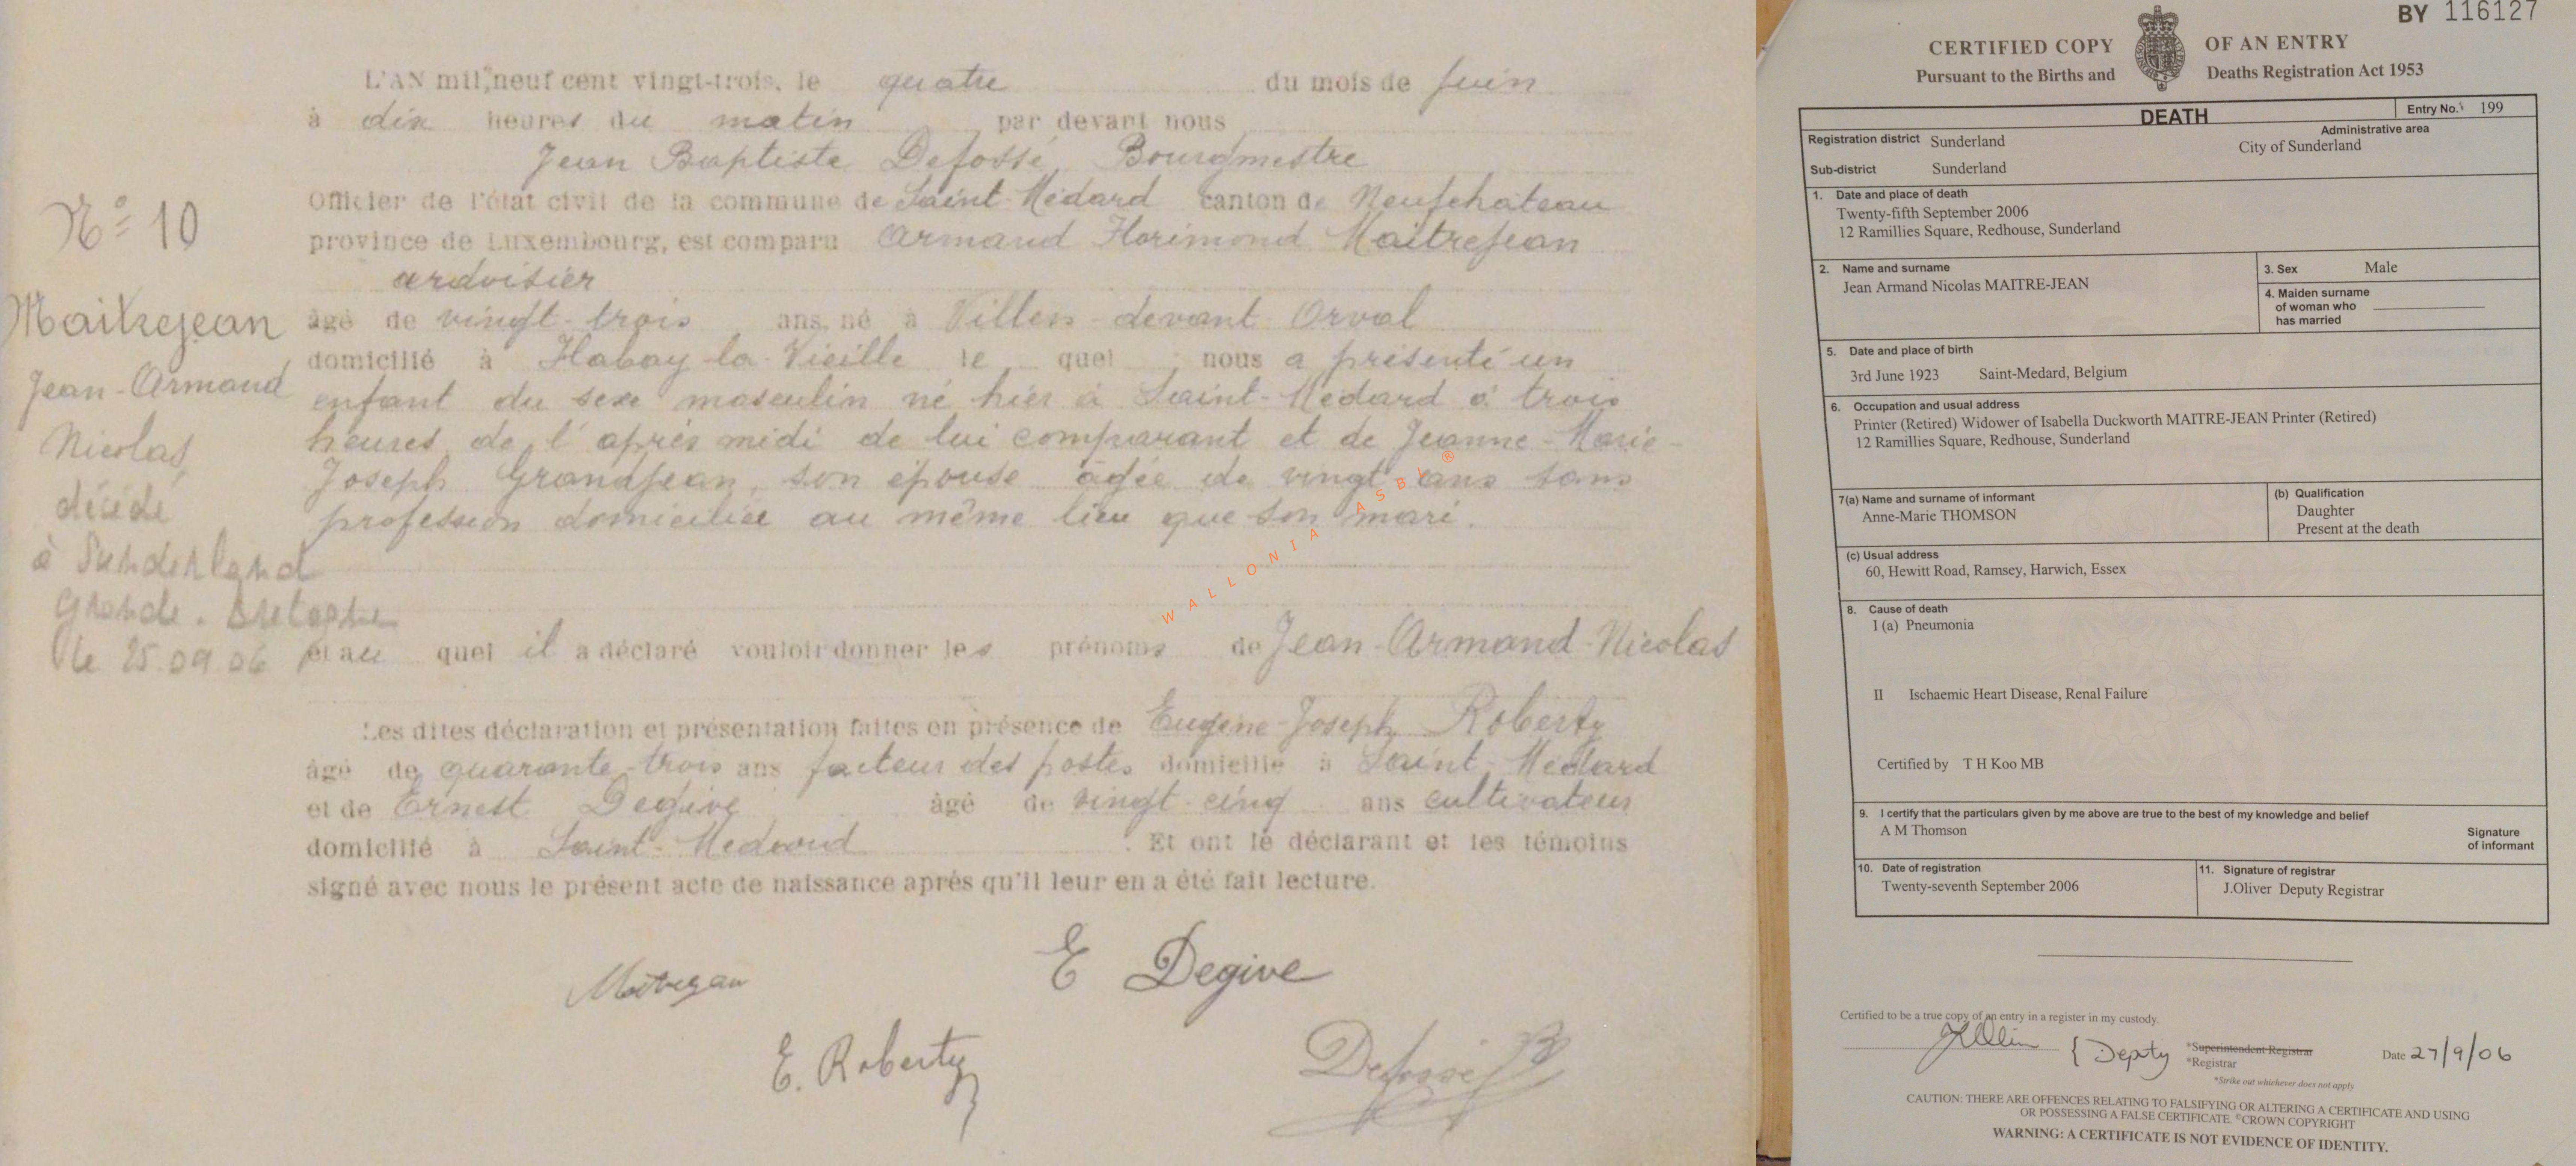 N° 10
Maitrejean
Jean-Armand
Nicolas
décédé
à Sunderland
Grande-Bretagne
le 25.09.06
L'AN mil neuf cent vingt-trois, le quatre du mois de Juin
à dix heures du matin par devant nous
Jean Baptiste Defossé, Bourgmestre
Officier de l'état civil de la commune de Saint-Médard canton de Neufchateau
province de Luxembourg, est comparu Armand Florimond Maitrejean
ardoisier
âgé de vingt-trois ans, né à Villers-devant-Orval
domicilié à Habay-la-Vieille le quel nous a présenté un
enfant du sexe masculin né hier à Saint-Médard à trois
heures de l'après midi de lui comparant et de Jeanne-Marie-
Joseph Grandjean, son épouse âgée de vingt ans sans
profession domiciliée au même lieu que son mari.
WALLONIA ASBL ®
et au quel il a déclaré vouloir donner les prénoms de Jean-Armand-Nicolas
Les dites déclaration et présentation faites en présence de Eugène-Joseph Roberty
âgé de quarante-trois ans facteur des postes domicilié à Saint-Médard
et de Ernest Degive âgé de vingt-cinq ans cultivateur
domicilié à Saint-Médard. Et ont le déclarant et les témoins
signé avec nous le présent acte de naissance après qu'il leur en a été fait lecture.
E Degive
E. Roberty
Defossé JB
BY 116127
CERTIFIED COPY OF AN ENTRY
Pursuant to the Births and Deaths Registration Act 1953
DEATH Entry No. 199
Registration district Sunderland Administrative area
City of Sunderland
Sub-district Sunderland
1. Date and place of death
Twenty-fifth September 2006
12 Ramillies Square, Redhouse, Sunderland
2. Name and surname
Jean Armand Nicolas MAITRE-JEAN
3. Sex Male
4. Maiden surname
of woman who
has married
5. Date and place of birth
3rd June 1923 Saint-Medard, Belgium
6. Occupation and usual address
Printer (Retired) Widower of Isabella Duckworth MAITRE-JEAN Printer (Retired)
12 Ramillies Square, Redhouse, Sunderland
7(a) Name and surname of informant
Anne-Marie THOMSON
(b) Qualification
Daughter
Present at the death
(c) Usual address
60, Hewitt Road, Ramsey, Harwich, Essex
8. Cause of death
I (a) Pneumonia
II Ischaemic Heart Disease, Renal Failure
Certified by T H Koo MB
9. I certify that the particulars given by me above are true to the best of my knowledge and belief
A M Thomson
Signature
of informant
10. Date of registration
Twenty-seventh September 2006
11. Signature of registrar
J.Oliver Deputy Registrar
Certified to be a true copy of an entry in a register in my custody.
{ Deputy
*Superintendent Registrar
*Registrar
Date 27/9/06
*Strike out whichever does not apply
CAUTION: THERE ARE OFFENCES RELATING TO FALSIFYING OR ALTERING A CERTIFICATE AND USING
OR POSSESSING A FALSE CERTIFICATE. ©CROWN COPYRIGHT
WARNING: A CERTIFICATE IS NOT EVIDENCE OF IDENTITY.